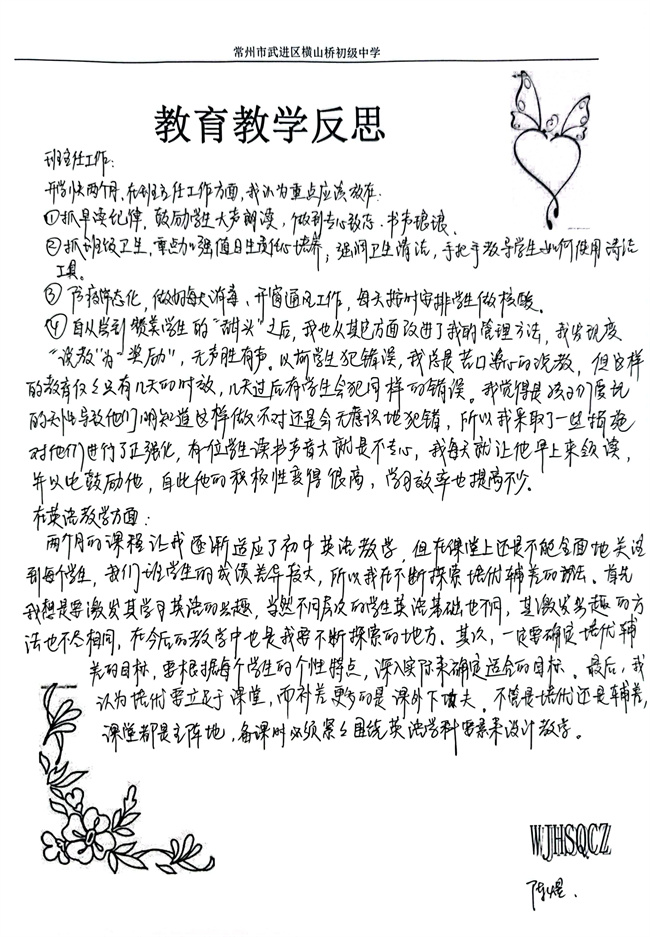 常州市武进区横山桥初级中学
教育教学反思
班主任工作：
开学快两个月，在班主任工作方面，我认为重点应该放在：
①抓早读纪律，鼓励学生大声朗读，做到专心致志，书声琅琅。
②抓班级卫生，重点加强值日生责任心培养，强调卫生清洁，手把手教导学生如何使用清洁
工具。
③防疫常态化，做好每天消毒、开窗通风工作，每天按时安排学生做核酸。
④自从尝到赞美学生的“甜头”之后，我也从其它方面改进了我的管理方法，我发现变
“说教”为“奖励”，无声胜有声。以前学生犯错误，我总是苦口婆心的说教，但这样
的教育仅仅只有几天的时效，几天过后有学生会犯同样的错误。我觉得是孩子们爱玩
的天性导致他们明知道这样做不对还是会无意识地犯错，所以我采取了一些措施
对他们进行了正强化，有一位学生读书声音大就是不专心，我每天就让他早上来领读，
并以此鼓励他，自此他的积极性变得很高，学习效率也提高不少。
在英语教学方面：
两个月的课程让我逐渐适应了初中英语教学，但在课堂上还是不能全面地关注
到每个学生，我们班学生的成绩差异较大，所以我在不断探索培优辅差的办法。首先
我想是要激发其学习英语的兴趣，当然不同层次的学生英语基础也不同，其激发兴趣的方
法也不尽相同，在今后的教学中也是我要不断探索的地方。其次，一定要确定培优辅
差的目标，要根据每个学生的个性特点，深入实际来确定适合的目标。最后，我
认为培优要立足于课堂，而补差更多的是课外下功夫。不管是培优还是辅差，
课堂都是主阵地，备课时必须紧紧围绕英语学科要素来设计教学。
WJHSQCZ
陈煜.